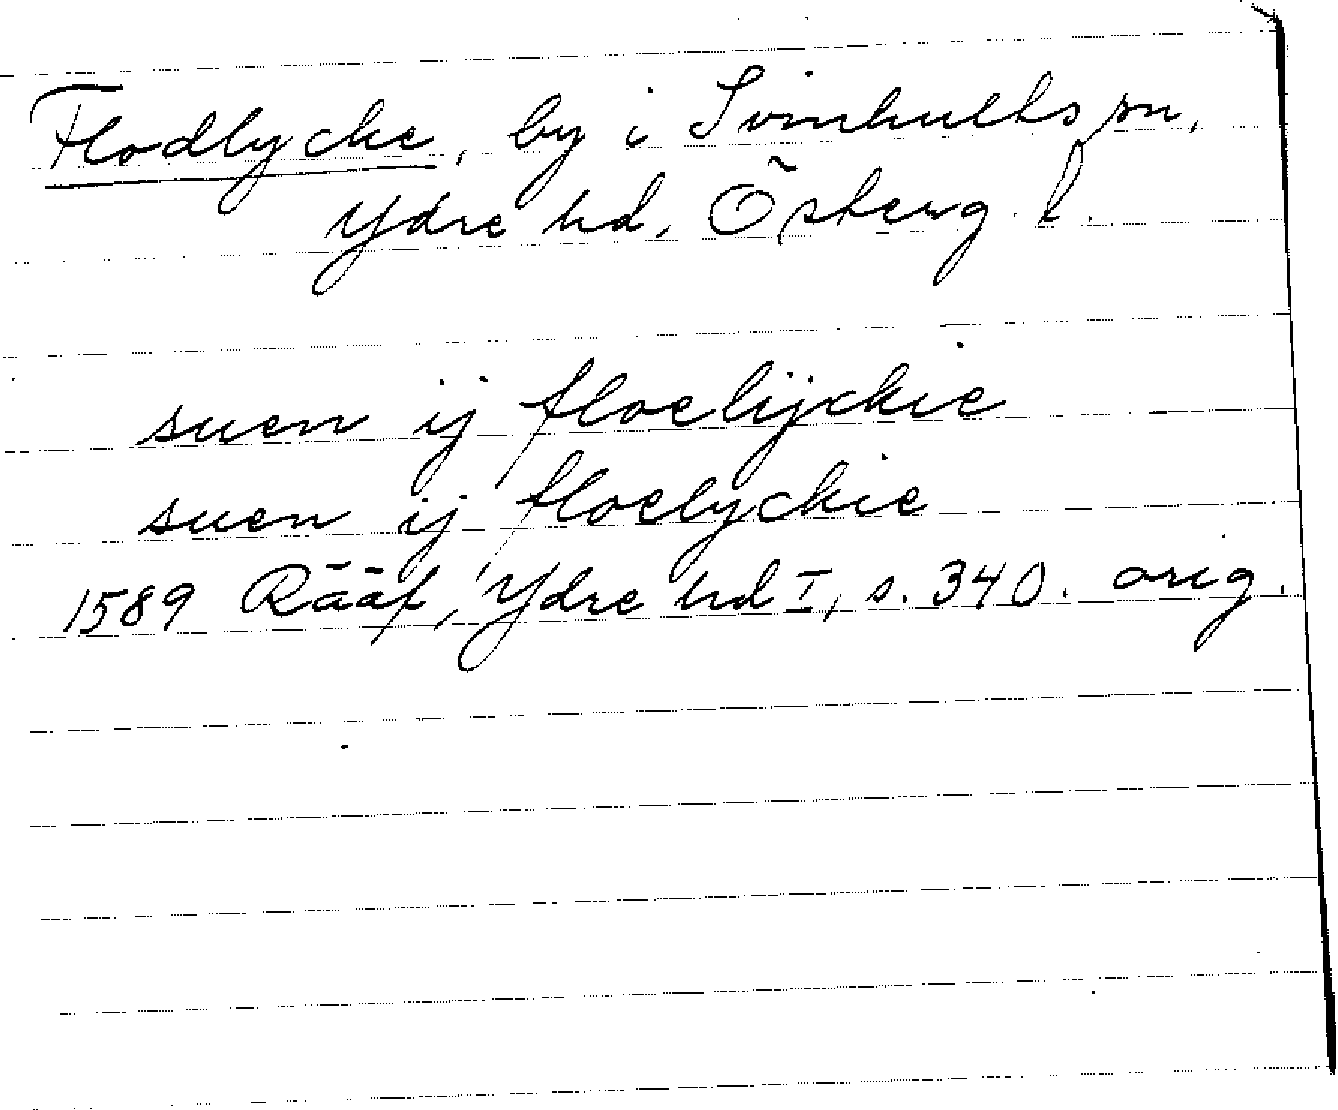 Flodlycke, by i Svinhults sn,
Ydre hd. Östergl.
suen ij floelijckie
suen ij floelyckie
1589 Rääf, Ydre hd I, s. 340. orig.